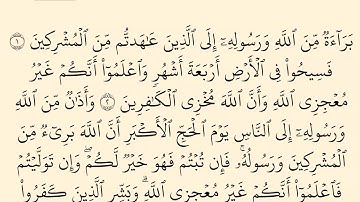 بَرَآءَةٌ مِّنَ ٱللَّهِ وَرَسُولِهِۦٓ إِلَى ٱلَّذِينَ عَٰهَدتُّم مِّنَ ٱلْمُشْرِكِينَ ١
فَسِيحُوا۟ فِى ٱلْأَرْضِ أَرْبَعَةَ أَشْهُرٍ وَٱعْلَمُوٓا۟ أَنَّكُمْ غَيْرُ
مُعْجِزِى ٱللَّهِ وَأَنَّ ٱللَّهَ مُخْزِى ٱلْكَٰفِرِينَ ٢ وَأَذَٰنٌ مِّنَ ٱللَّهِ
وَرَسُولِهِۦٓ إِلَى ٱلنَّاسِ يَوْمَ ٱلْحَجِّ ٱلْأَكْبَرِ أَنَّ ٱللَّهَ بَرِىٓءٌ مِّنَ
ٱلْمُشْرِكِينَ وَرَسُولُهُۥ ۚ فَإِن تُبْتُمْ فَهُوَ خَيْرٌ لَّكُمْ ۖ وَإِن تَوَلَّيْتُمْ
فَٱعْلَمُوٓا۟ أَنَّكُمْ غَيْرُ مُعْجِزِى ٱللَّهِ ۗ وَبَشِّرِ ٱلَّذِينَ كَفَرُوا۟